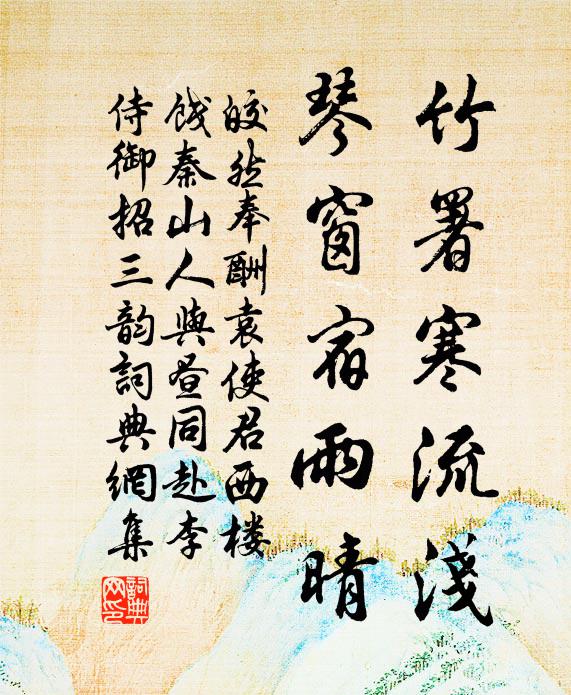 竹署寒流淺
琴窗宿雨晴
皎然奉酬袁使君西楼
饯秦山人與昼同赴李
侍御招三韵詞典網集
詞典
网印